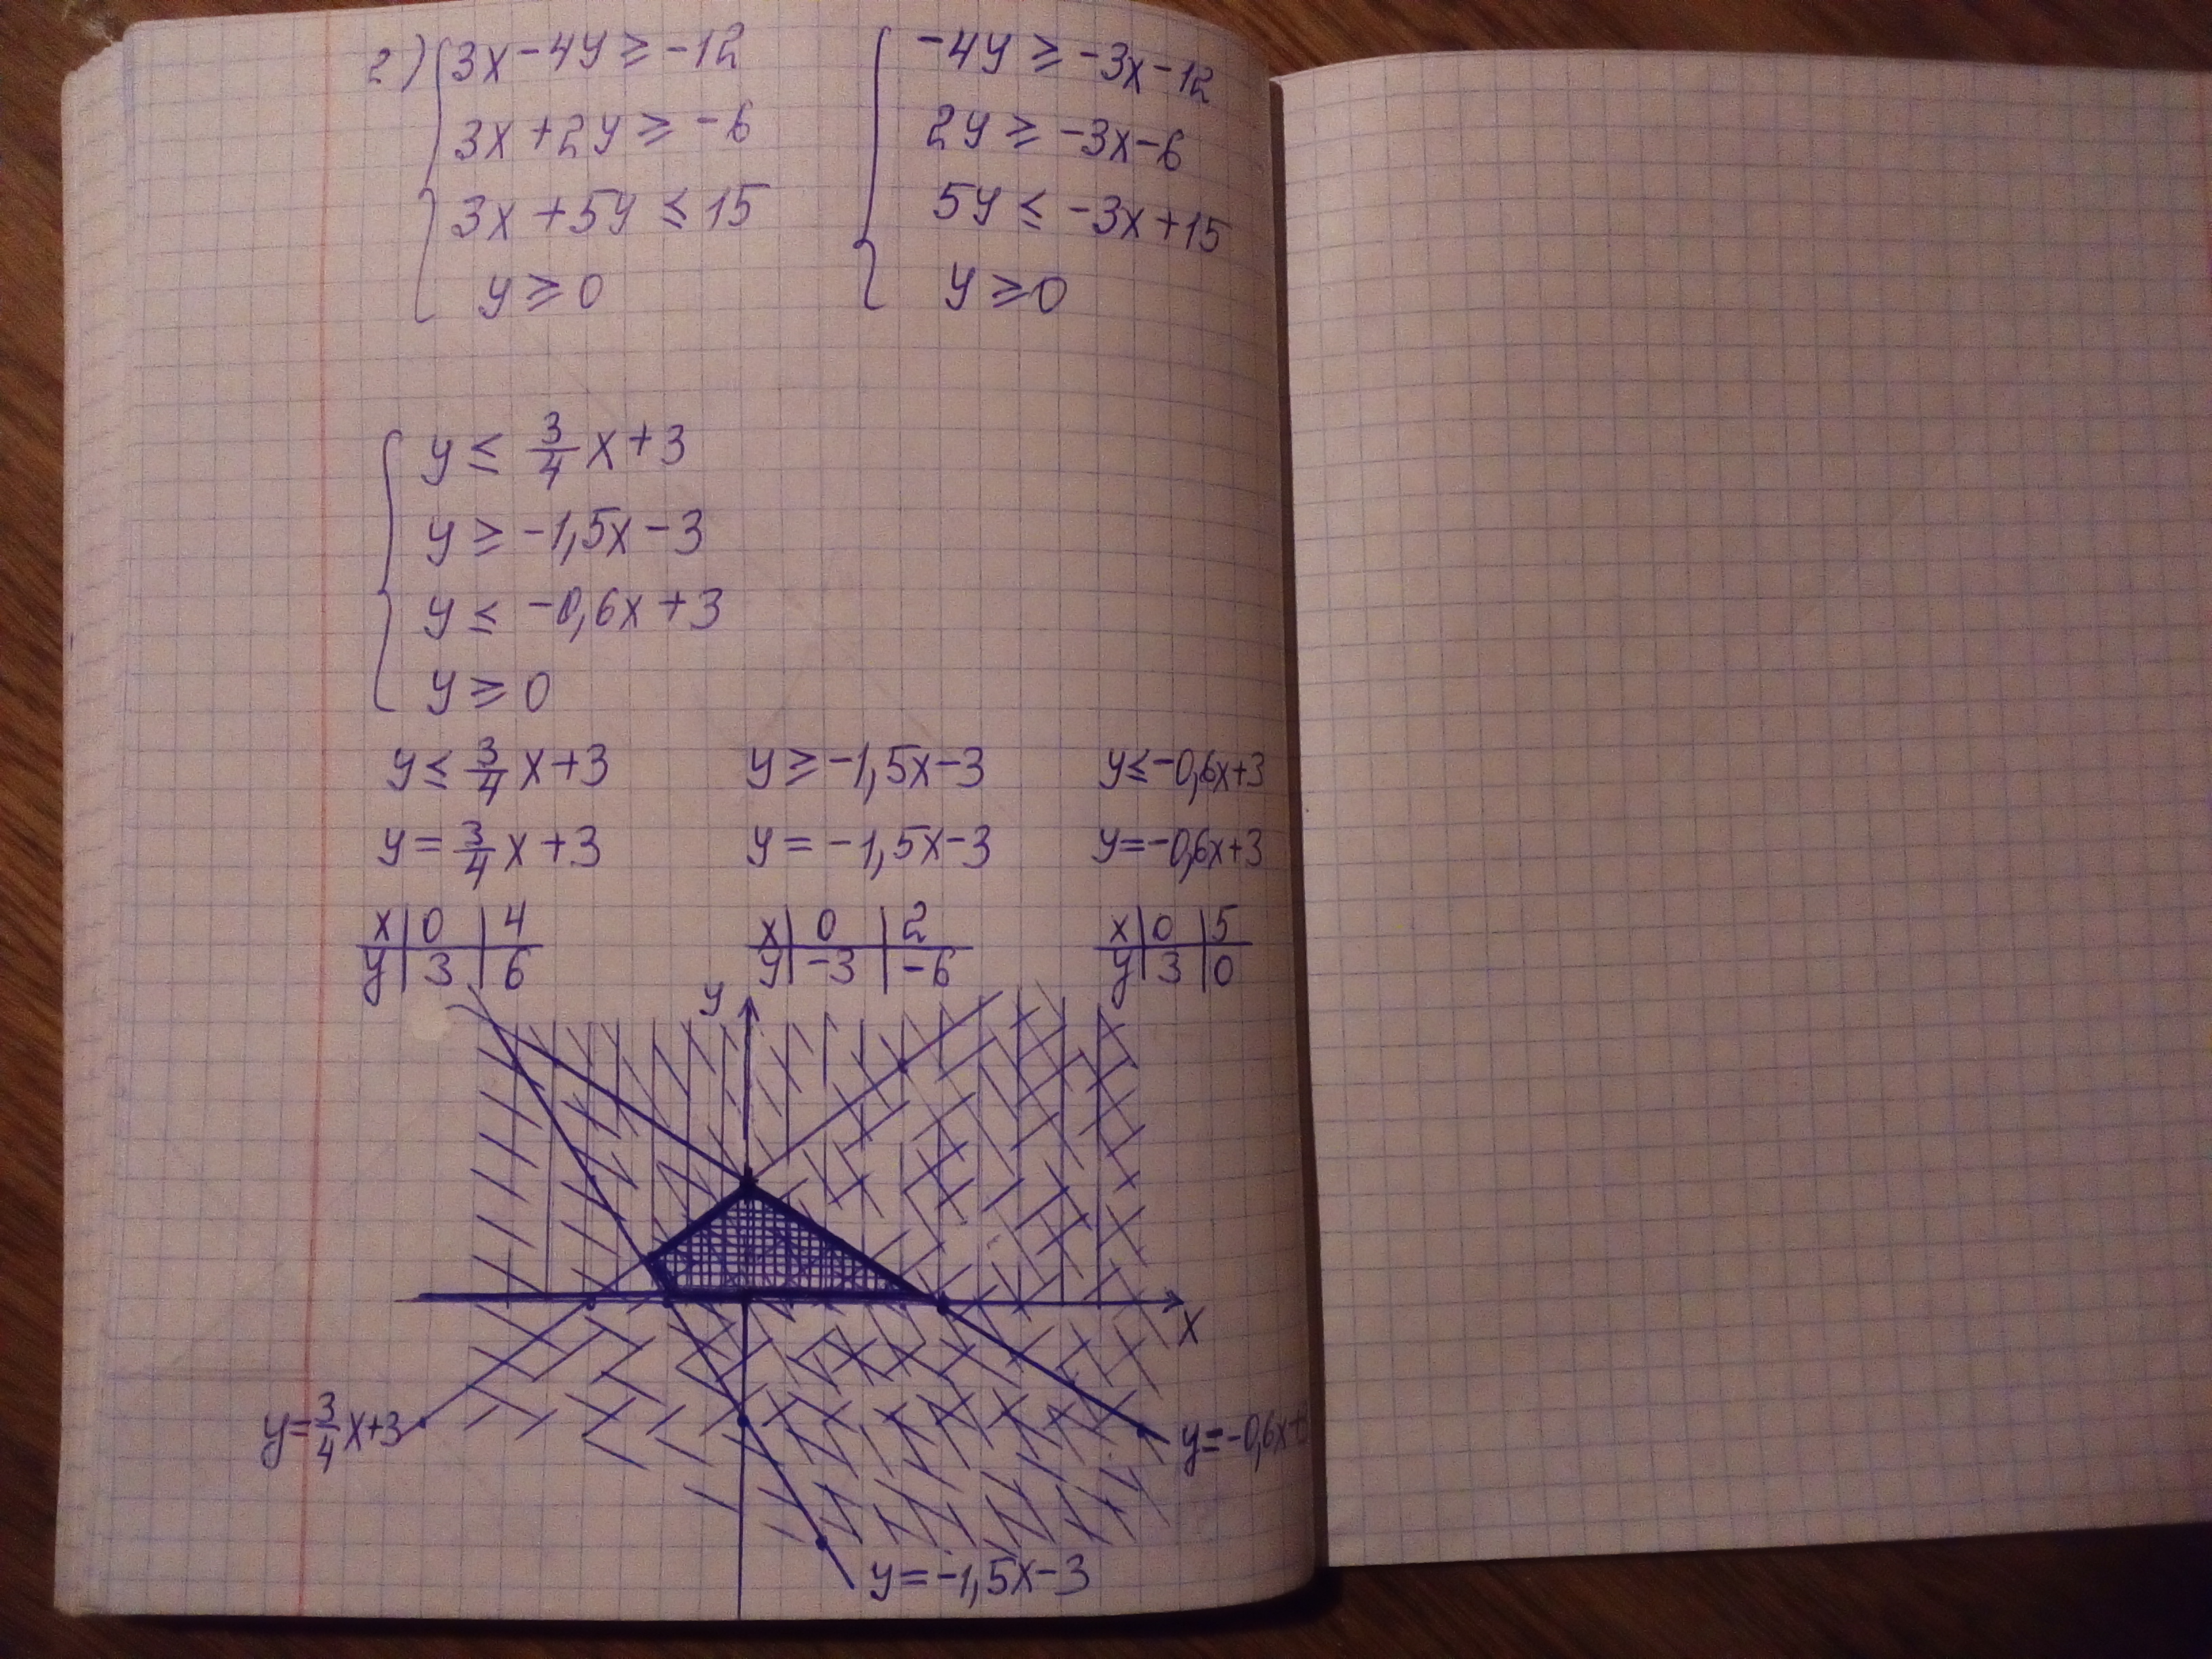 2) 3x-4y ≥ -12
3x+2y ≥ -6
3x+5y ≤ 15
y ≥ 0
-4y ≥ -3x-12
2y ≥ -3x-6
5y ≤ -3x+15
y ≥ 0
y ≤ 3/4 x+3
y ≥ -1,5x-3
y ≤ -0,6x+3
y ≥ 0
y ≤ 3/4 x+3 y ≥ -1,5x-3 y ≤ -0,6x+3
y = 3/4 x+3 y = -1,5x-3 y = -0,6x+3
x | 0 | 4 x | 0 | 2 x | 0 | 5
y | 3 | 6 y | -3 | -6 y | 3 | 0
y
x
y = 3/4 x+3
y = -0,6x+
y = -1,5x-3